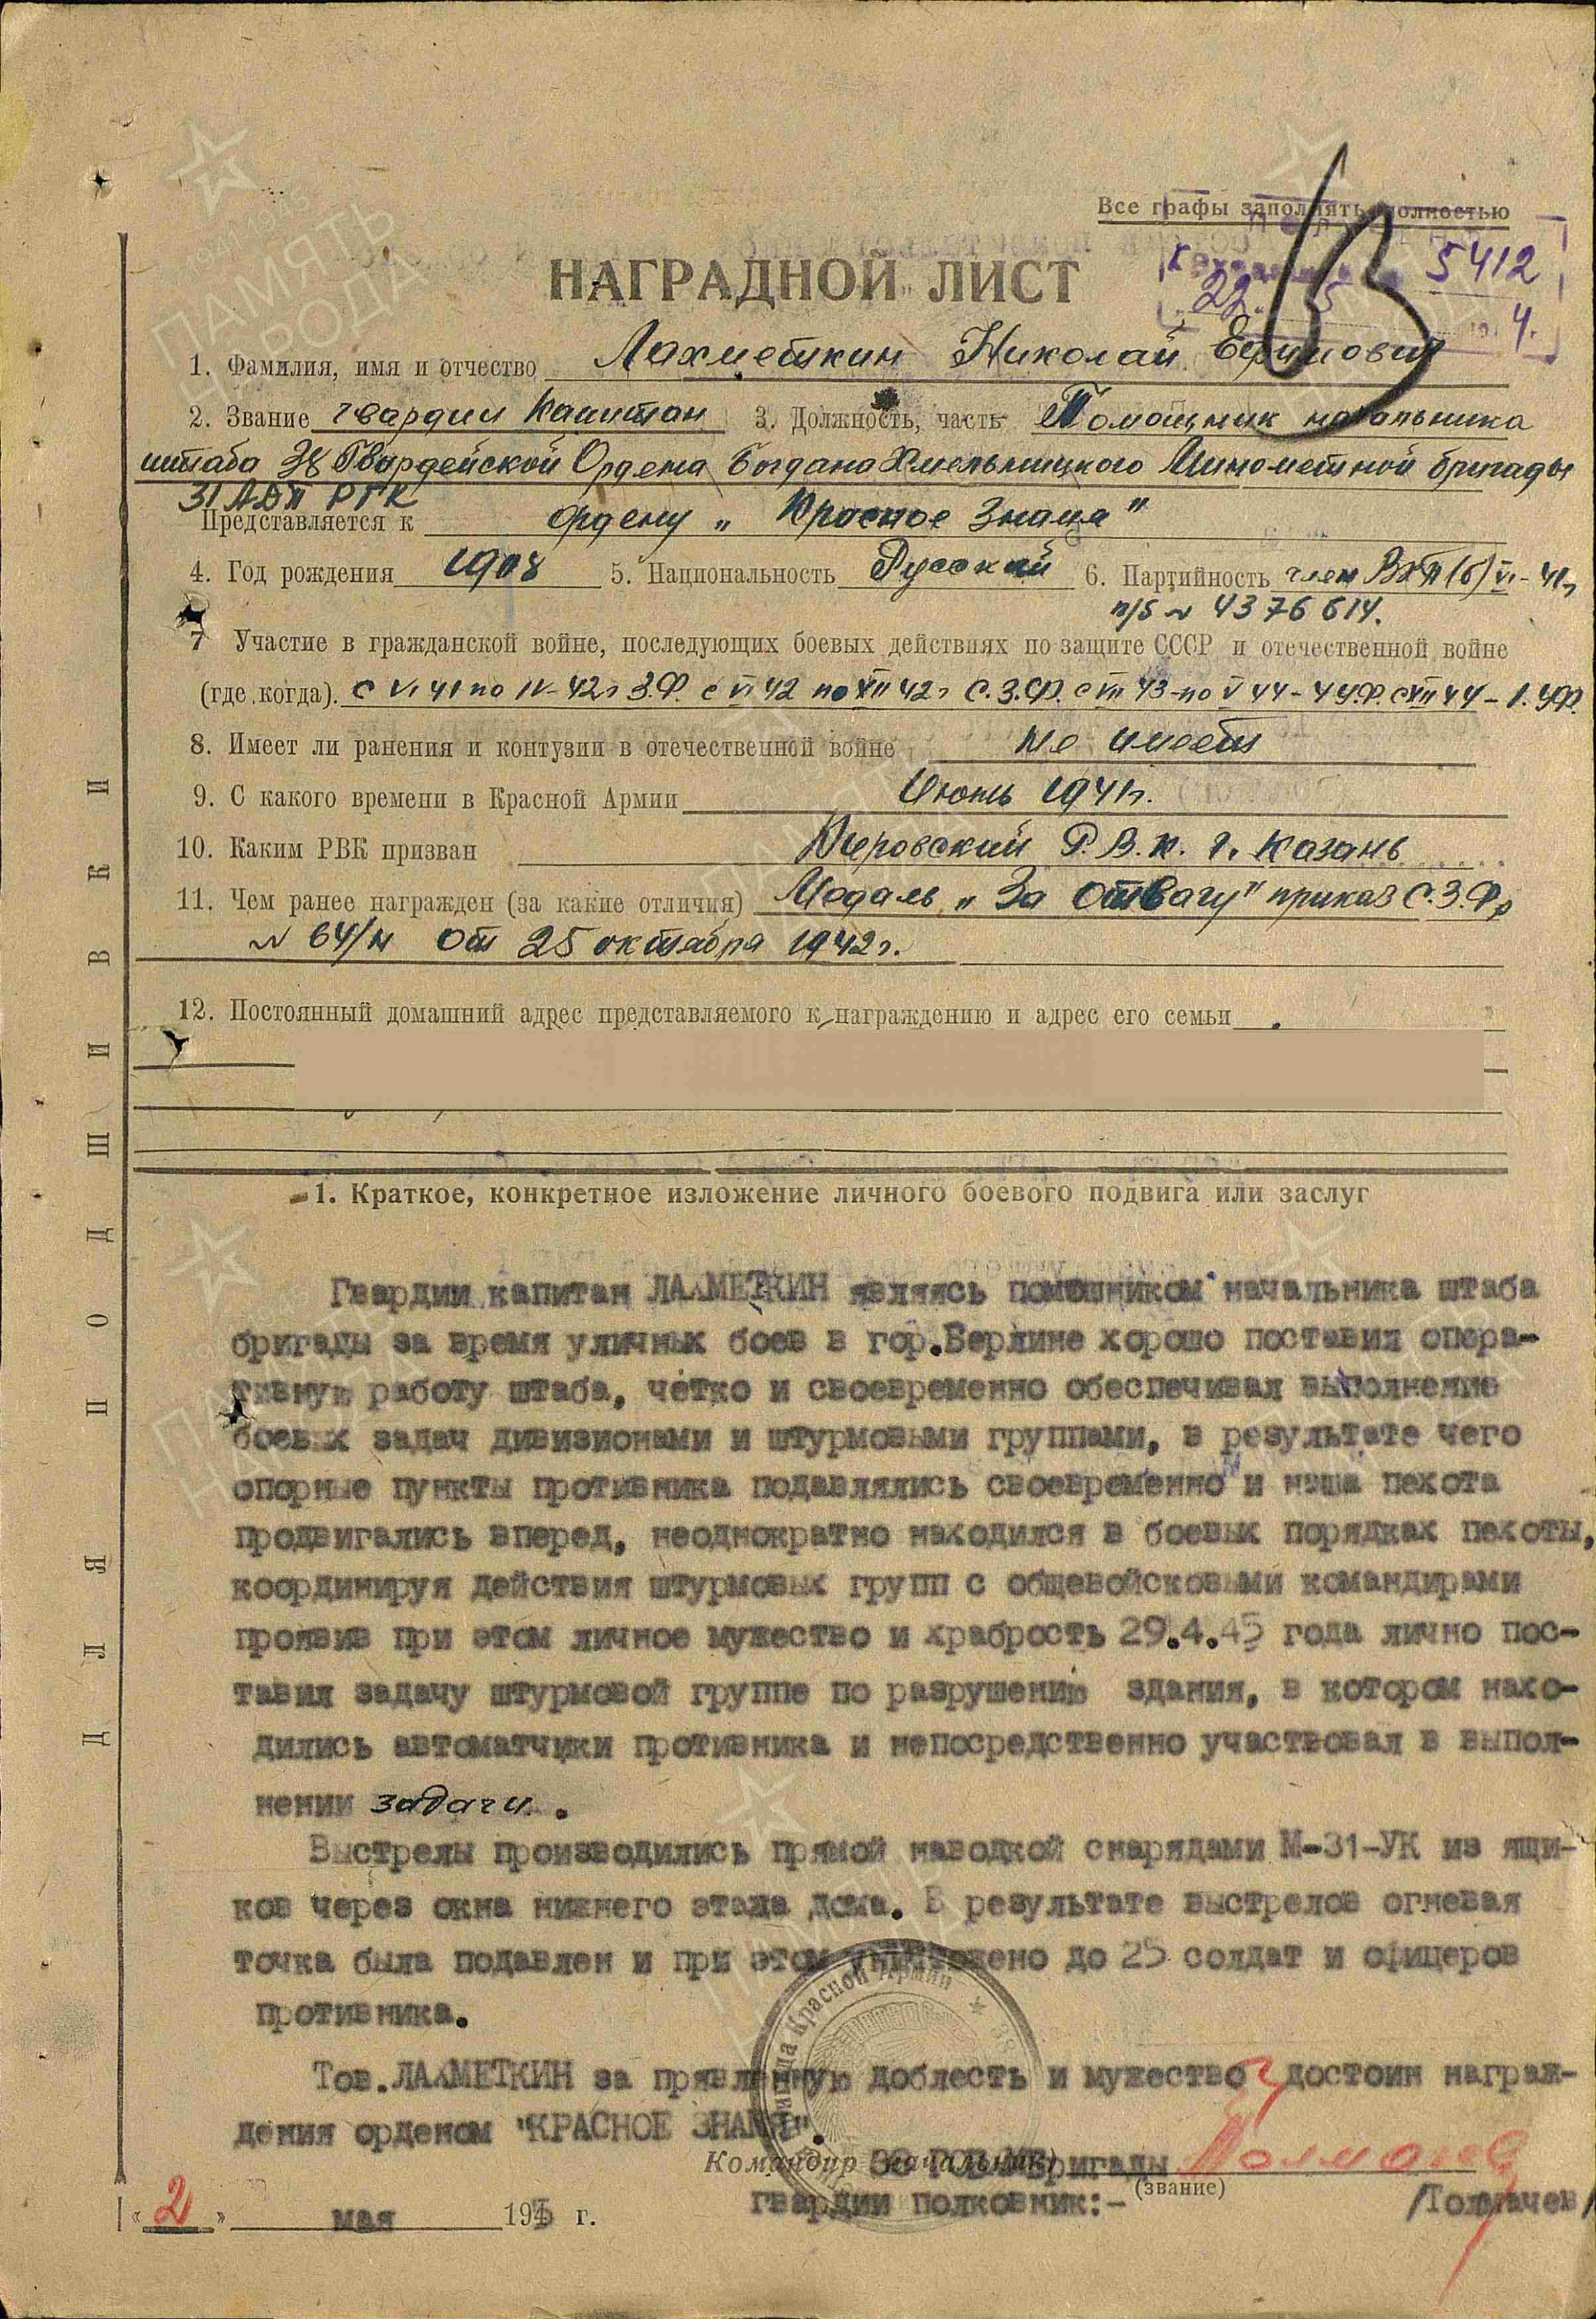 Все графы заполнять полностью
5412
22 5 194.
НАГРАДНОЙ ЛИСТ
1. Фамилия, имя и отчество Лахметкин Николай Ефимович
2. Звание гвардии Капитан 3. Должность, часть Помощник начальника
штаба 38 Гвардейской Ордена Богдана Хмельницкого Минометной бригады
31 АДП РГК
Представляется к ордену „Красное Знамя"
4. Год рождения 1908 5. Национальность Русский 6. Партийность член ВКП(б) VI-41г
п/б № 4376614.
7 Участие в гражданской войне, последующих боевых действиях по защите СССР и отечественной войне
(где, когда). с VI 41 по IV-42г З.Ф. с VI 42 по XII 42г С.З.Ф. с VII 43-по V 44-4 У.Ф. с XII 44-1. УФ.
8. Имеет ли ранения и контузии в отечественной войне не имеет
9. С какого времени в Красной Армии Июнь 1941г.
10. Каким РВК призван Кировский Р.В.К. г. Казань
11. Чем ранее награжден (за какие отличия) Медаль „За Отвагу" приказ С.З.Ф,
№ 64/н от 25 октября 1942г.
12. Постоянный домашний адрес представляемого к награждению и адрес его семьи
1. Краткое, конкретное изложение личного боевого подвига или заслуг
Гвардии капитан ЛАХМЕТКИН являясь помошником начальника штаба
бригады за время уличных боев в гор.Берлине хорошо поставил опера-
тивную работу штаба, четко и своевременно обеспечивал выполнение
боевых задач дивизионами и штурмовыми группами, в результате чего
опорные пункты противника подавлялись своевременно и наша пехота
продвигались вперед, неоднократно находился в боевых порядках пехоты,
координируя действия штурмовых групп с общевойсковыми командирами
проявив при этом личное мужество и храбрость 29.4.45 года лично пос-
тавил задачу штурмовой группе по разрушению здания, в котором нахо-
дились автоматчики противника и непосредственно участвовал в выпол-
нении задачи.
Выстрелы производились прямой наводкой снарядами М-31-УК из ящи-
ков через окна нижнего этажа дома. В результате выстрелов огневая
точка была подавлен и при этом уничтожено до 25 солдат и офицеров
противника.
Тов.ЛАХМЕТКИН за прявленную доблесть и мужество достоин награж-
дения орденом "КРАСНОЕ ЗНАМЯ".
Командир (начальник) 38 бригады
(звание)
гвардии полковник:- /Толмачев/
« 2 » мая 1945 г.
ДЛЯ ПОДШИВКИ
Красной Армии
ПАМЯТЬ НАРОДА
1941-1945